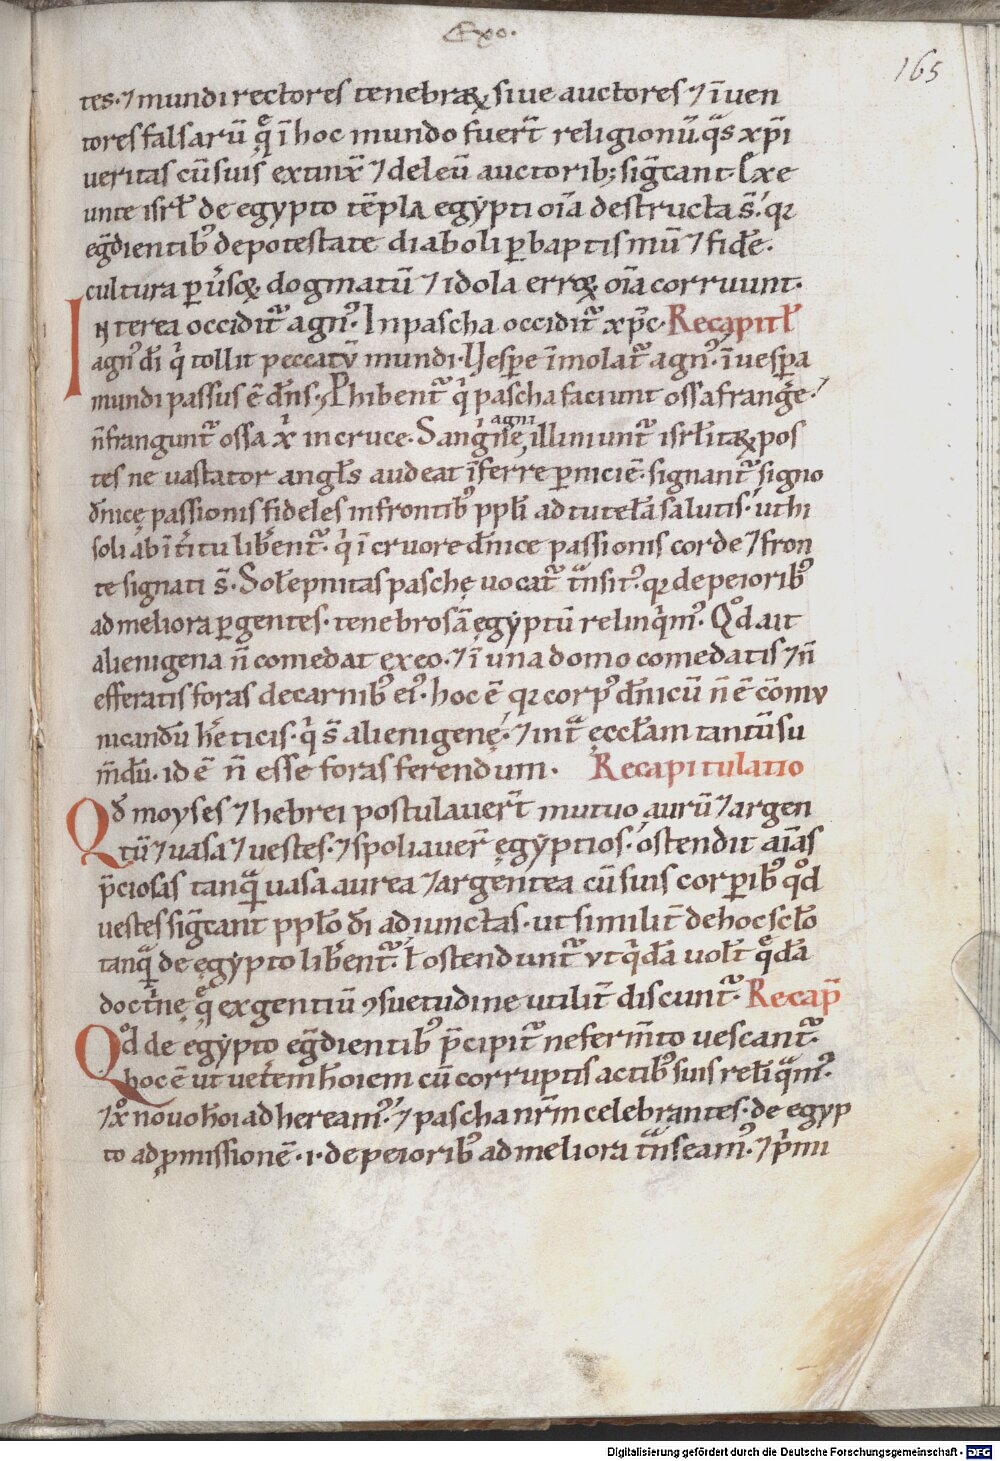 Exo.
165
tes· ⁊ mundi rectores tenebraꝝ, siue auctores ⁊ īuen
tores falsarū q̄ ī hoc mundo fuer̄t religionū. q̄s xp̄i
ueritas cū suis extinx̄ ⁊ deleū auctorib; siḡcant· Exe
unte isrl̄ de egypto tēpla egẏpti oīa destructa s̄· qꝛ
eḡdientib᾽ de potestate diaboli ꝑ baptismū ⁊ fidē·
cultura ꝑuersoꝝ· dogmatū ⁊ idola erroꝝ oīa corruunt·
Interea occidit᷑ agn᾽· In pascha occidit᷑ xp̄c· Recapitl̄
agn᾽ dī qͥ tollit peccatū mundi· Uesꝑe īmolat᷑ agn᾽· ī uesꝑa
mundi passus ē dn̄s· Phibent᷑ qͥ pascha faciunt ossa frangere·
n̄ frangunt᷑ ossa xͥ in cruce· Sanguine agni illiniunt᷑ isrl̄itaꝝ pos
tes ne uastator angl̄s audeat īferre ꝑniciē· signant᷑ signo
dn̄icę passionis fideles in frontib᾽ ppl̄i ad tutelā salutis· ut hi
soli ab īt̄itu lib̄ent᷑· qͥ ī cruore dn̄ice passionis corde ⁊ fron
te signati s̄· Sol̄epnitas paschę uocat᷑ tͣnsit᾽· qꝛ de peiorib᾽
ad meliora ꝑgentes· tenebrosā ęgẏptū relinqͥm᾽· Qͦd ait
alienigena n̄ comedat ex eo· ⁊ ī una domo comedatis ⁊ n̄
efferatis foras de carnib᾽ ei᾽· hoc ē qꝛ corp᾽ dn̄icū n̄ ē cōmu
nicandū h̄eticis· qͥ s̄ alienigenę· ⁊ intͣ ęccl̄am tantū su
m̄dū· id ē n̄ esse foras ferendum· Recapitulatio
Qd̄ moyses ⁊ hebrei postulauer̄t mutuo aurū ⁊ argen
tū ⁊ uasa ⁊ uestes· ⁊ spoliauer̄ ęgẏptios· ostendit aīas
p̄ciosas tanqͣ uasa aurea ⁊ argentea cū suis corꝑib᾽ qͦd
uestes siḡcant ppl̄o dī adiunctas· ut similit̄ de hoc scl̄o
tanqͣ de ęgẏpto lib̄ent᷑· l̄ ostendunt᷑ ut qͥdā uol̄t qͥdā
doctͥnę q̄ ex gentiū ꝯsuetudine utilit̄ discunt᷑· Recap̄
Qͦd de egẏpto eḡdientib᾽ p̄cipit᷑ ne ferm̄to uescant᷑·
hoc ē ut uet̄em hōiem cū corruptis actib᾽ suis relīqͣm᾽·
⁊ xͦ nouo hōi adhereāM᾽· ⁊ pascha nr̄m celebrantes· de egyp
to ad ꝓmissionē· ·i· de peiorib᾽ ad meliora tͣnseam᾽· ⁊ pͥmi
Digitalisierung gefördert durch die Deutsche Forschungsgemeinschaft - DFG